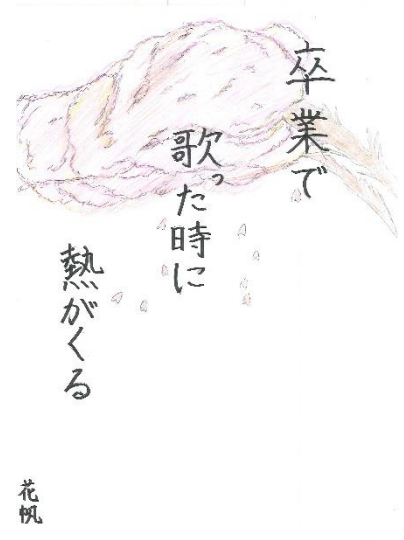 卒業で
歌った時に
熱がくる
花帆